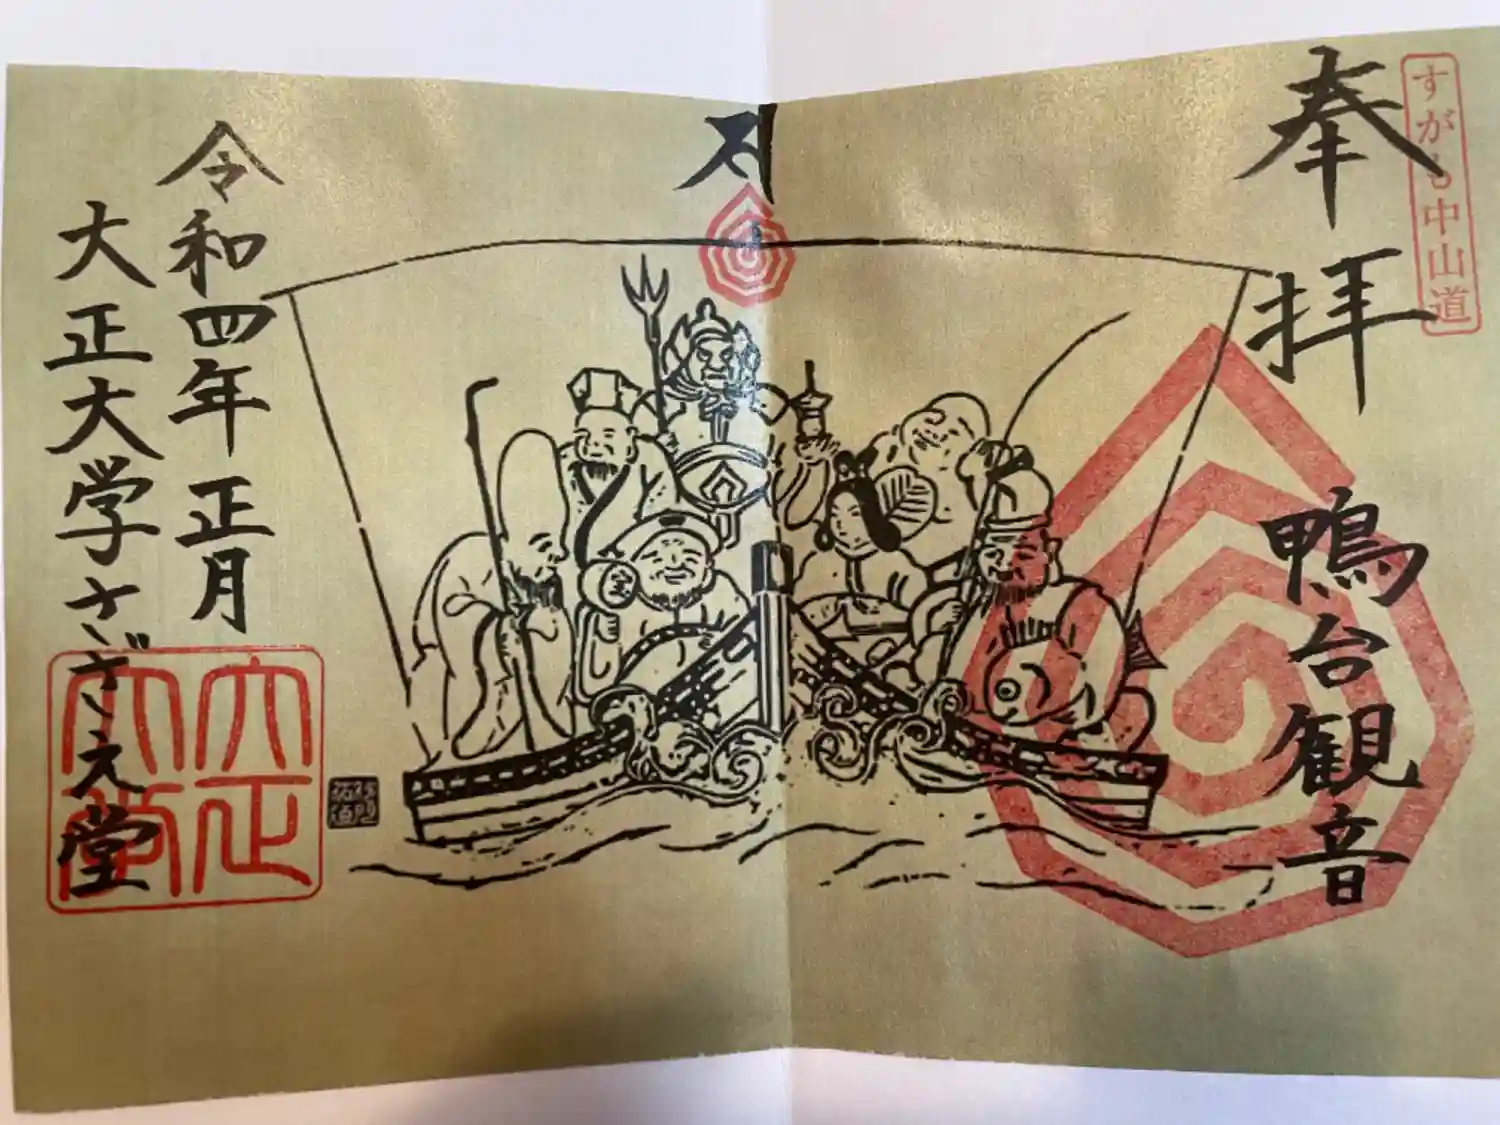 すがも中山道
奉拝
鴨台観音
宝
令和四年正月
大正大学さざえ堂